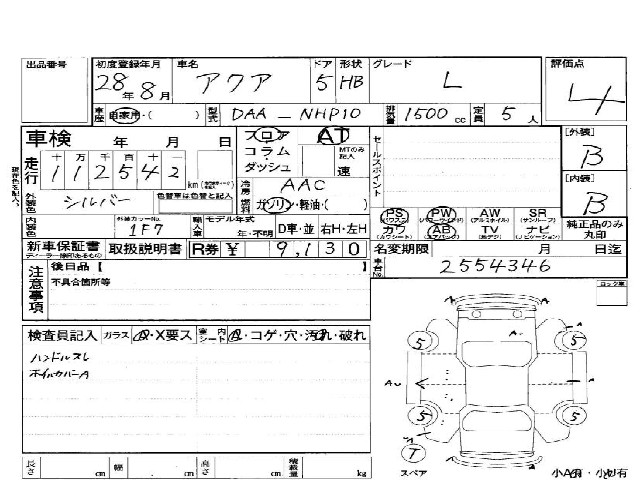 出品番号 初度登録年月 車名 ドア 形状 グレード 評価点
28年8月 アクア 5 HB L 4
車歴 自家用・( ) 型式 DAA-NHP10 排気量 1500cc 定員 5人
車検 年 月 日 フロア AT セールスポイント [外装]
走行 十万千百十一 コラム MTのみ記入 B
112542 km ダッシュ 速 [内装]
外装色 シルバー 色替車は色替と記入 冷房 AAC B
燃料 ガソリン・軽油・( ) PS PW AW SR
内装色 外装カラーNo. 1F7 輸入車 モデル年式 年・不明 D車・並 右H・左H カワ AB TV ナビ 純正品のみ丸印
新車保証書 取扱説明書 R券 ¥ 9,130 名変期限 月 日迄
ディーラー捺印あるもの 車台No. 2554346
注意事項 後日品【 】
不具合箇所等
ロック車
検査員記入 ガラス A・X要ス 室内 シート A・コゲ・穴・汚れ・破れ
ハンドルスレ
ホイルカバーA
A A
5 5
A A
5 5
T
スペア 小A有・小U有
長さ cm 幅 cm 高さ cm 積載量 kg
現存色を記入。